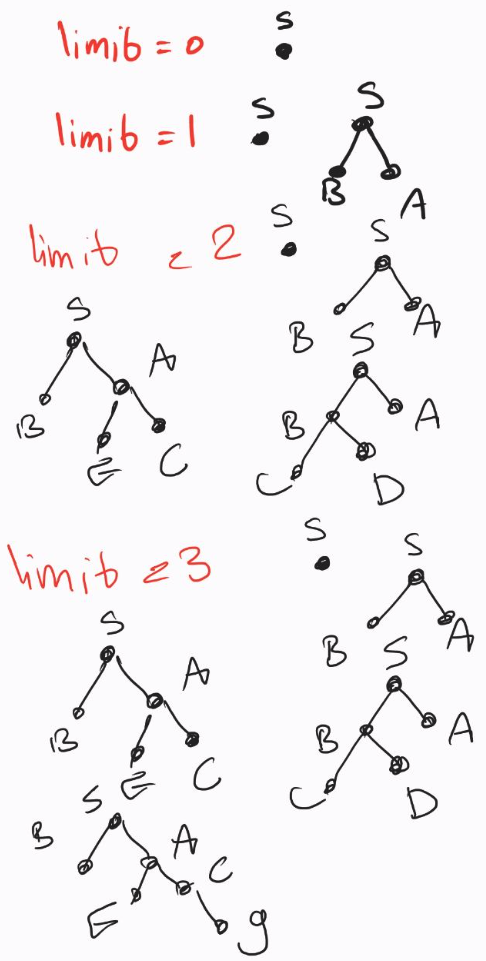 limit = 0 S
limit = 1 S S
B A
limit = 2 S S
B A
S S
A B A
B E C C D
limit = 3 S S
B A
S S
A B A
B E C C D
S
B A C
E g